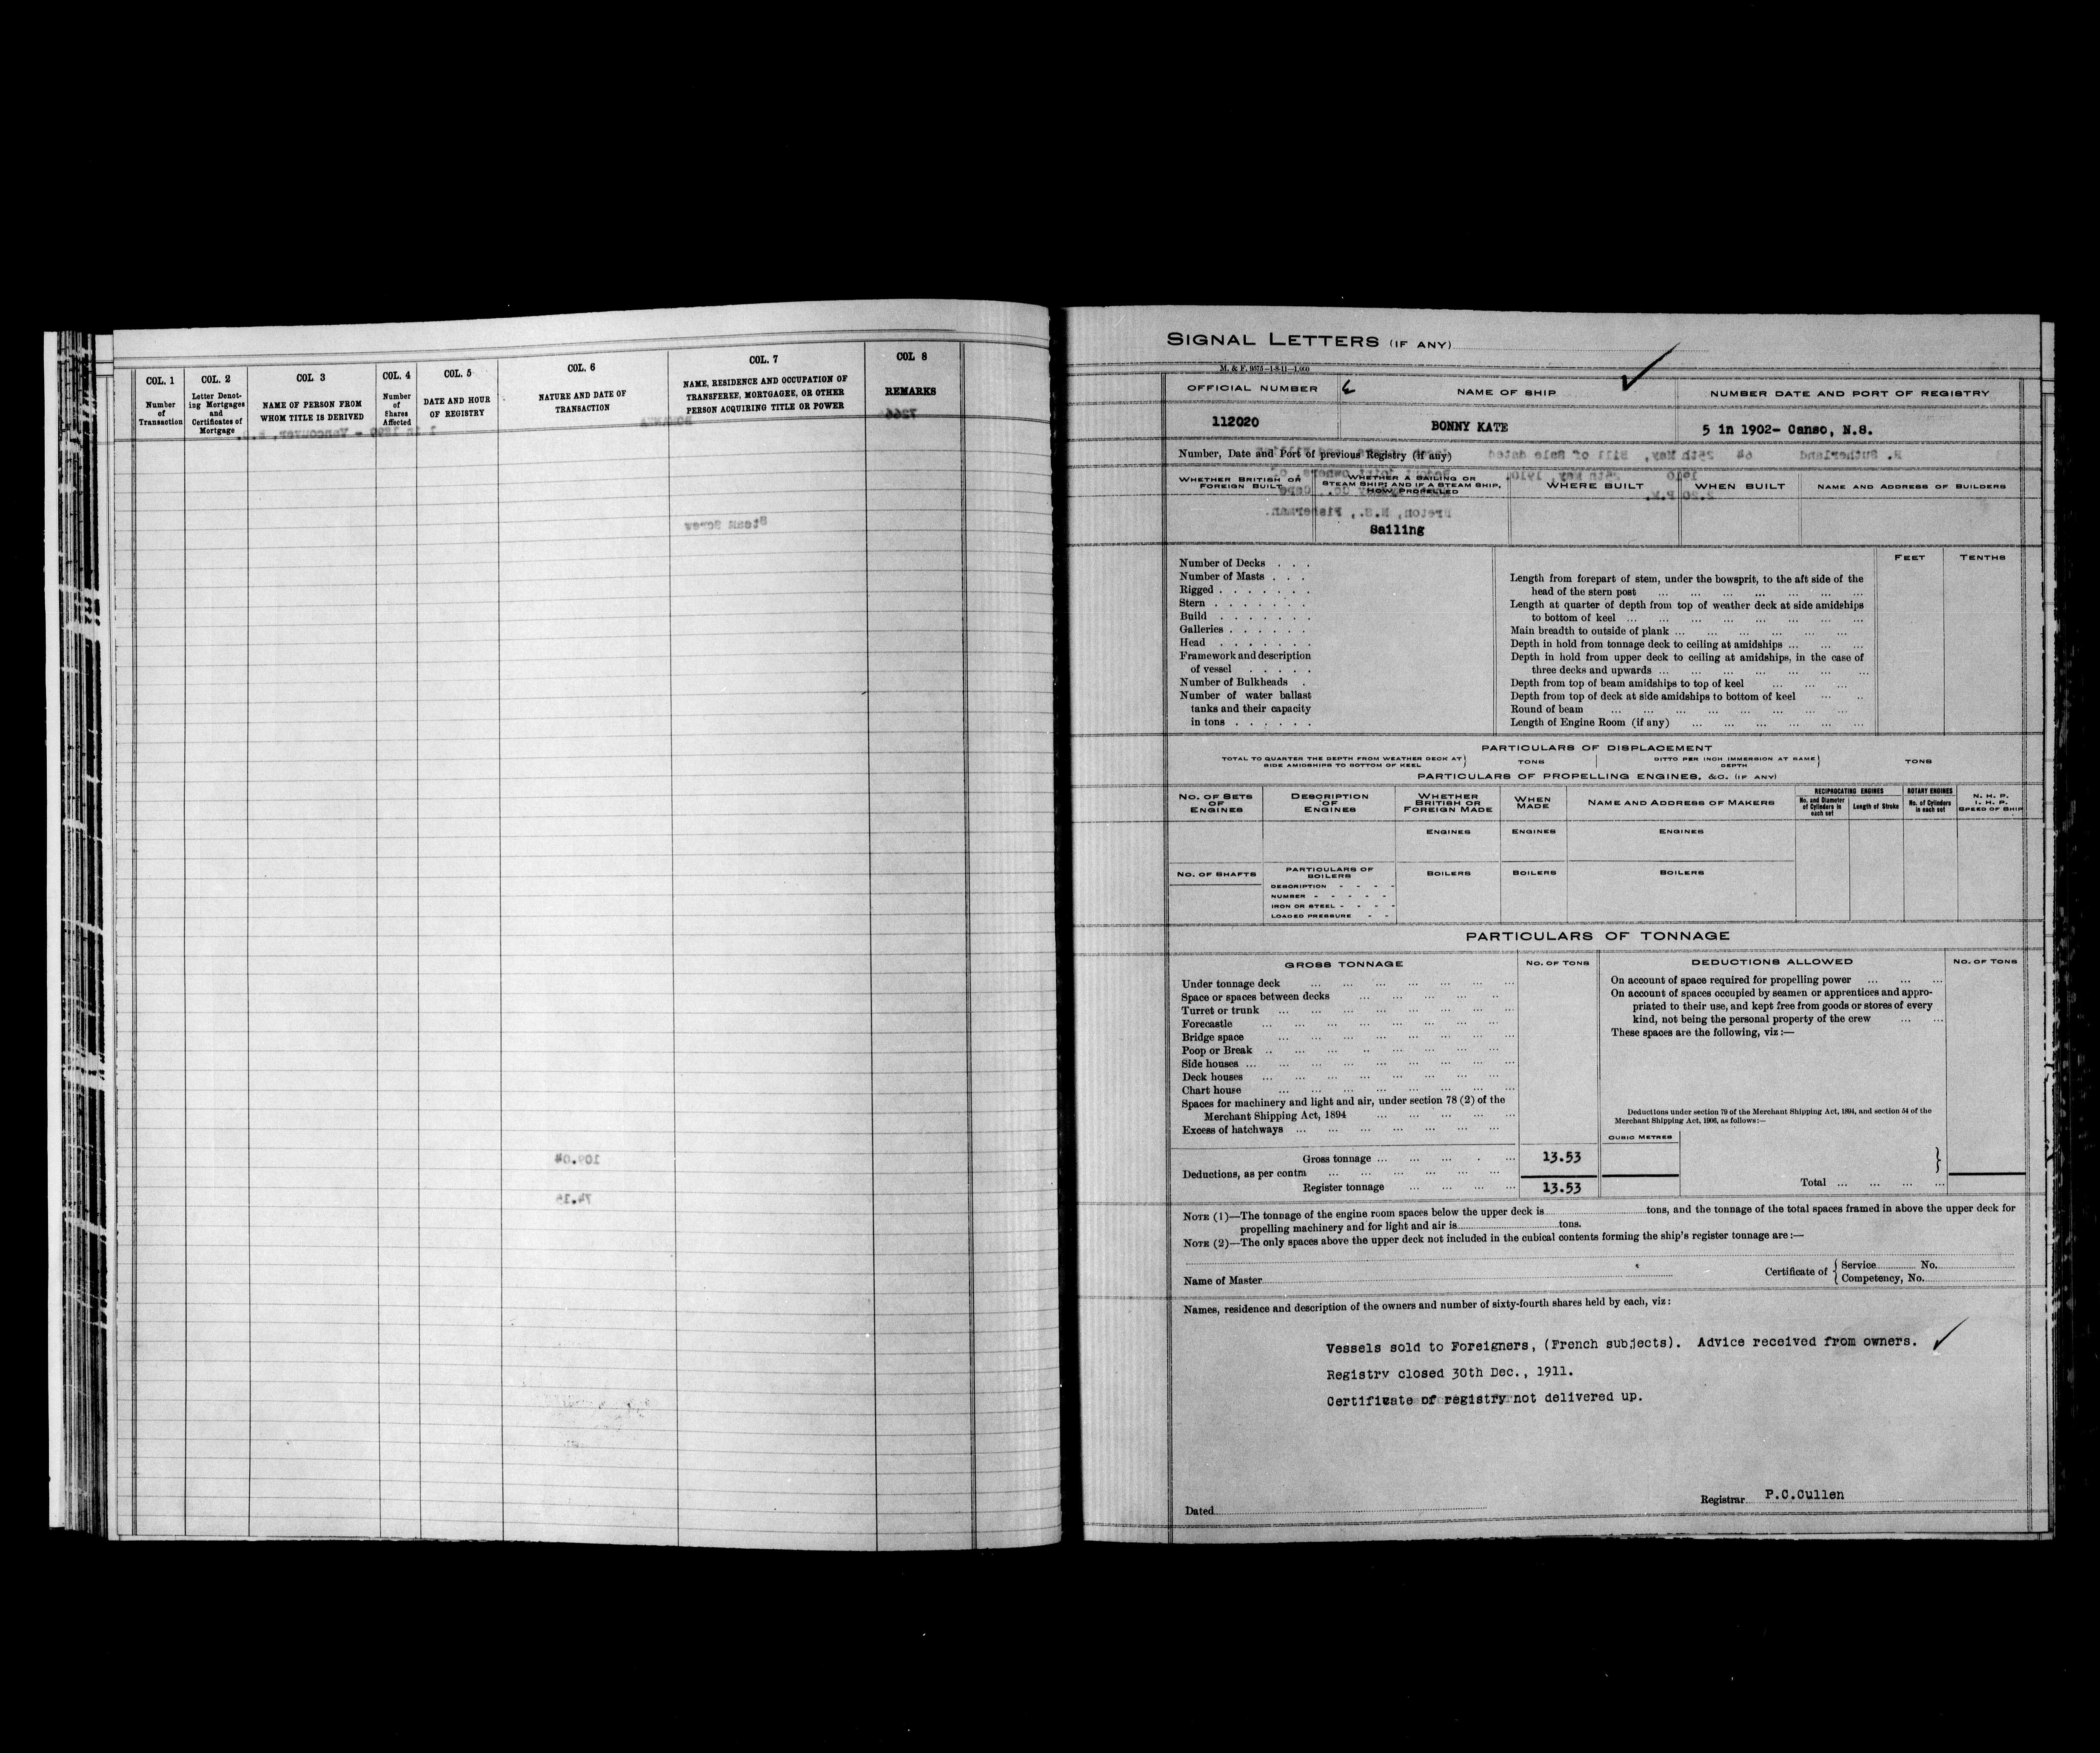 COL. 1
Number
of
Transaction
COL. 2
Letter Denot-
ing Mortgages
and
Certificates of
Mortgage
COL. 3
NAME OF PERSON FROM
WHOM TITLE IS DERIVED
COL. 4
Number
of
Shares
Affected
COL. 5
DATE AND HOUR
OF REGISTRY
COL. 6
NATURE AND DATE OF
TRANSACTION
COL. 7
NAME, RESIDENCE AND OCCUPATION OF
TRANSFEREE, MORTGAGEE, OR OTHER
PERSON ACQUIRING TITLE OR POWER
COL 8
REMARKS
Steam Screw
109.04
SIGNAL LETTERS (IF ANY)
M. & F. 9575—1-8-11—1,000
OFFICIAL NUMBER
112020
NAME OF SHIP
BONNY KATE
NUMBER DATE AND PORT OF REGISTRY
5 in 1902- Canso, N.S.
Number, Date and Port of previous Registry (if any)
R. Sutherland 64 25th May, Bill of Sale dated
WHETHER BRITISH OR
FOREIGN BUILT
WHETHER A SAILING OR
STEAM SHIP; AND IF A STEAM SHIP,
HOW PROPELLED
WHERE BUILT
WHEN BUILT
NAME AND ADDRESS OF BUILDERS
1910 25th May, 1910.
2.20 P.M.
Breton, N.S., Fisherman.
Sailing
Number of Decks . . .
Number of Masts . . .
Rigged . . . . . . .
Stern . . . . . . .
Build . . . . . . .
Galleries . . . . . .
Head . . . . . . .
Framework and description
of vessel . . . . .
Number of Bulkheads .
Number of water ballast
tanks and their capacity
in tons . . . . . .
FEET
TENTHS
Length from forepart of stem, under the bowsprit, to the aft side of the
head of the stern post
Length at quarter of depth from top of weather deck at side amidships
to bottom of keel
Main breadth to outside of plank
Depth in hold from tonnage deck to ceiling at amidships
Depth in hold from upper deck to ceiling at amidships, in the case of
three decks and upwards
Depth from top of beam amidships to top of keel
Depth from top of deck at side amidships to bottom of keel
Round of beam
Length of Engine Room (if any)
PARTICULARS OF DISPLACEMENT
TOTAL TO QUARTER THE DEPTH FROM WEATHER DECK AT
SIDE AMIDSHIPS TO BOTTOM OF KEEL
TONS
DITTO PER INCH IMMERSION AT SAME
DEPTH
TONS
PARTICULARS OF PROPELLING ENGINES, &C. (IF ANY)
NO. OF SETS
OF
ENGINES
DESCRIPTION
OF
ENGINES
WHETHER
BRITISH OR
FOREIGN MADE
WHEN
MADE
NAME AND ADDRESS OF MAKERS
RECIPROCATING ENGINES
No. and Diameter
of Cylinders in
each set
Length of Stroke
ROTARY ENGINES
No. of Cylinders
in each set
N. H. P.
I. H. P.
SPEED OF SHIP
ENGINES
ENGINES
ENGINES
NO. OF SHAFTS
PARTICULARS OF
BOILERS
DESCRIPTION - - - -
NUMBER - - - - -
IRON OR STEEL - - - -
LOADED PRESSURE - -
BOILERS
BOILERS
BOILERS
PARTICULARS OF TONNAGE
GROSS TONNAGE
NO. OF TONS
DEDUCTIONS ALLOWED
NO. OF TONS
Under tonnage deck
Space or spaces between decks
Turret or trunk
Forecastle
Bridge space
Poop or Break
Side houses
Deck houses
Chart house
Spaces for machinery and light and air, under section 78 (2) of the
Merchant Shipping Act, 1894
Excess of hatchways
Gross tonnage 13.53
Deductions, as per contra
Register tonnage 13.53
On account of space required for propelling power
On account of spaces occupied by seamen or apprentices and appro-
priated to their use, and kept free from goods or stores of every
kind, not being the personal property of the crew
These spaces are the following, viz :—
Deductions under section 79 of the Merchant Shipping Act, 1894, and section 54 of the
Merchant Shipping Act, 1906, as follows:—
CUBIC METRES
Total
NOTE (1)—The tonnage of the engine room spaces below the upper deck is tons, and the tonnage of the total spaces framed in above the upper deck for
propelling machinery and for light and air is tons.
NOTE (2)—The only spaces above the upper deck not included in the cubical contents forming the ship's register tonnage are :—
Name of Master
Certificate of { Service No.
Competency, No.
Names, residence and description of the owners and number of sixty-fourth shares held by each, viz :
Vessels sold to Foreigners, (French subjects). Advice received from owners.
Registry closed 30th Dec., 1911.
Certificate of registry not delivered up.
Dated
Registrar P.C.Cullen